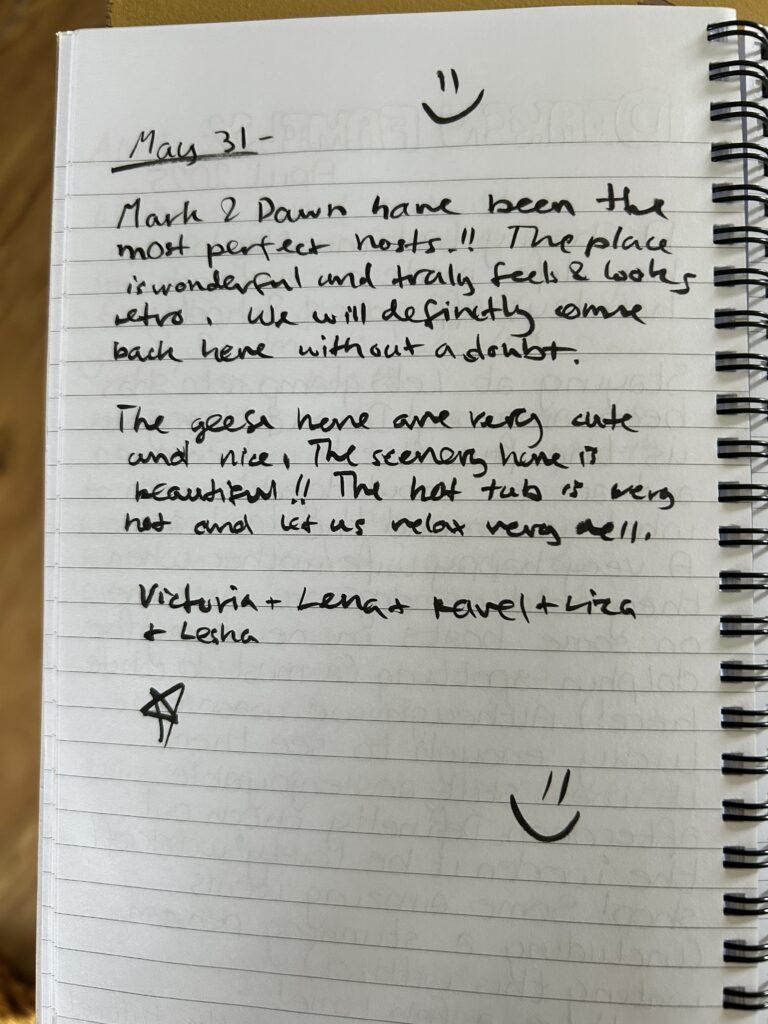 May 31-
Mark & Dawn have been the
most perfect hosts.!! The place
is wonderful and truly feels & looks
retro. We will definetly come
back here without a doubt.
The geese here are very cute
and nice. The scenery here is
beautiful!! The hot tub is very
hot and let us relax very well.
Victoria + Lena + Pavel + Liza
+ Lesha